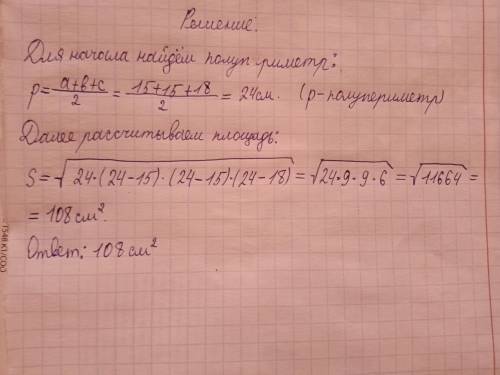 Решение:
Для начала найдём полуп риметр:
p= a+b+c/2 = 15+15+18/2 = 24см. (p-полупериметр)
Далее рассчитываем площадь:
S=√24·(24-15)·(24-15)·(24-18) = √24·9·9·6 = √11664 =
= 108 см².
Ответ: 108 см²